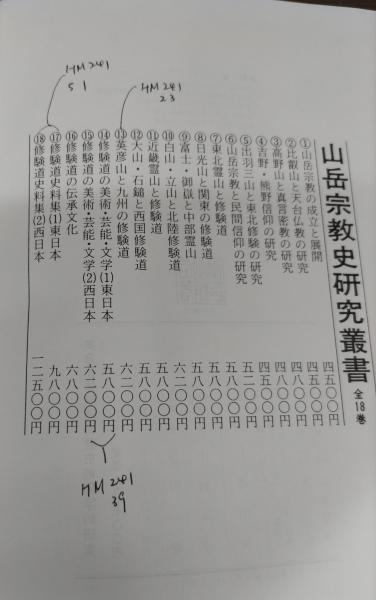 山岳宗教史研究叢書 全18巻
①山岳宗教の成立と展開 四五〇〇円
②比叡山と天台仏教の研究 四五〇〇円
③高野山と真言密教の研究 四八〇〇円
④吉野・熊野信仰の研究 四八〇〇円
⑤出羽三山と東北修験の研究 四五〇〇円
⑥山岳宗教と民間信仰の研究 五二〇〇円
⑦東北霊山と修験道 五五〇〇円
⑧日光山と関東の修験道 五八〇〇円
⑨富士・御嶽と中部霊山 五八〇〇円
⑩白山・立山と北陸修験道 六二〇〇円
⑪近畿霊山と修験道 五八〇〇円
⑫大山・石鎚と西国修験道 五八〇〇円
⑬英彦山と九州の修験道 六二〇〇円
⑭修験道の美術・芸能・文学(1)東日本 五八〇〇円
⑮修験道の美術・芸能・文学(2)西日本 六二〇〇円
⑯修験道の伝承文化 六八〇〇円
⑰修験道史料集(1)東日本 九八〇〇円
⑱修験道史料集(2)西日本 一二五〇〇円
HM241
51
HM241
23
HM241
39